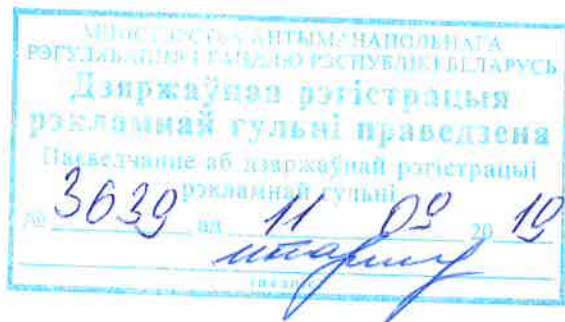 МІНІСТЭРСТВА АНТЫМАНАПОЛЬНАГА
РЭГУЛЯВАННЯ І ГАНДЛЮ РЭСПУБЛІКІ БЕЛАРУСЬ
Дзяржаўная рэгістрацыя
рэкламнай гульні праведзена
Пасведчанне аб дзяржаўнай рэгістрацыі
рэкламнай гульні
№ 3639 ад 11 09 2019
(подпіс)